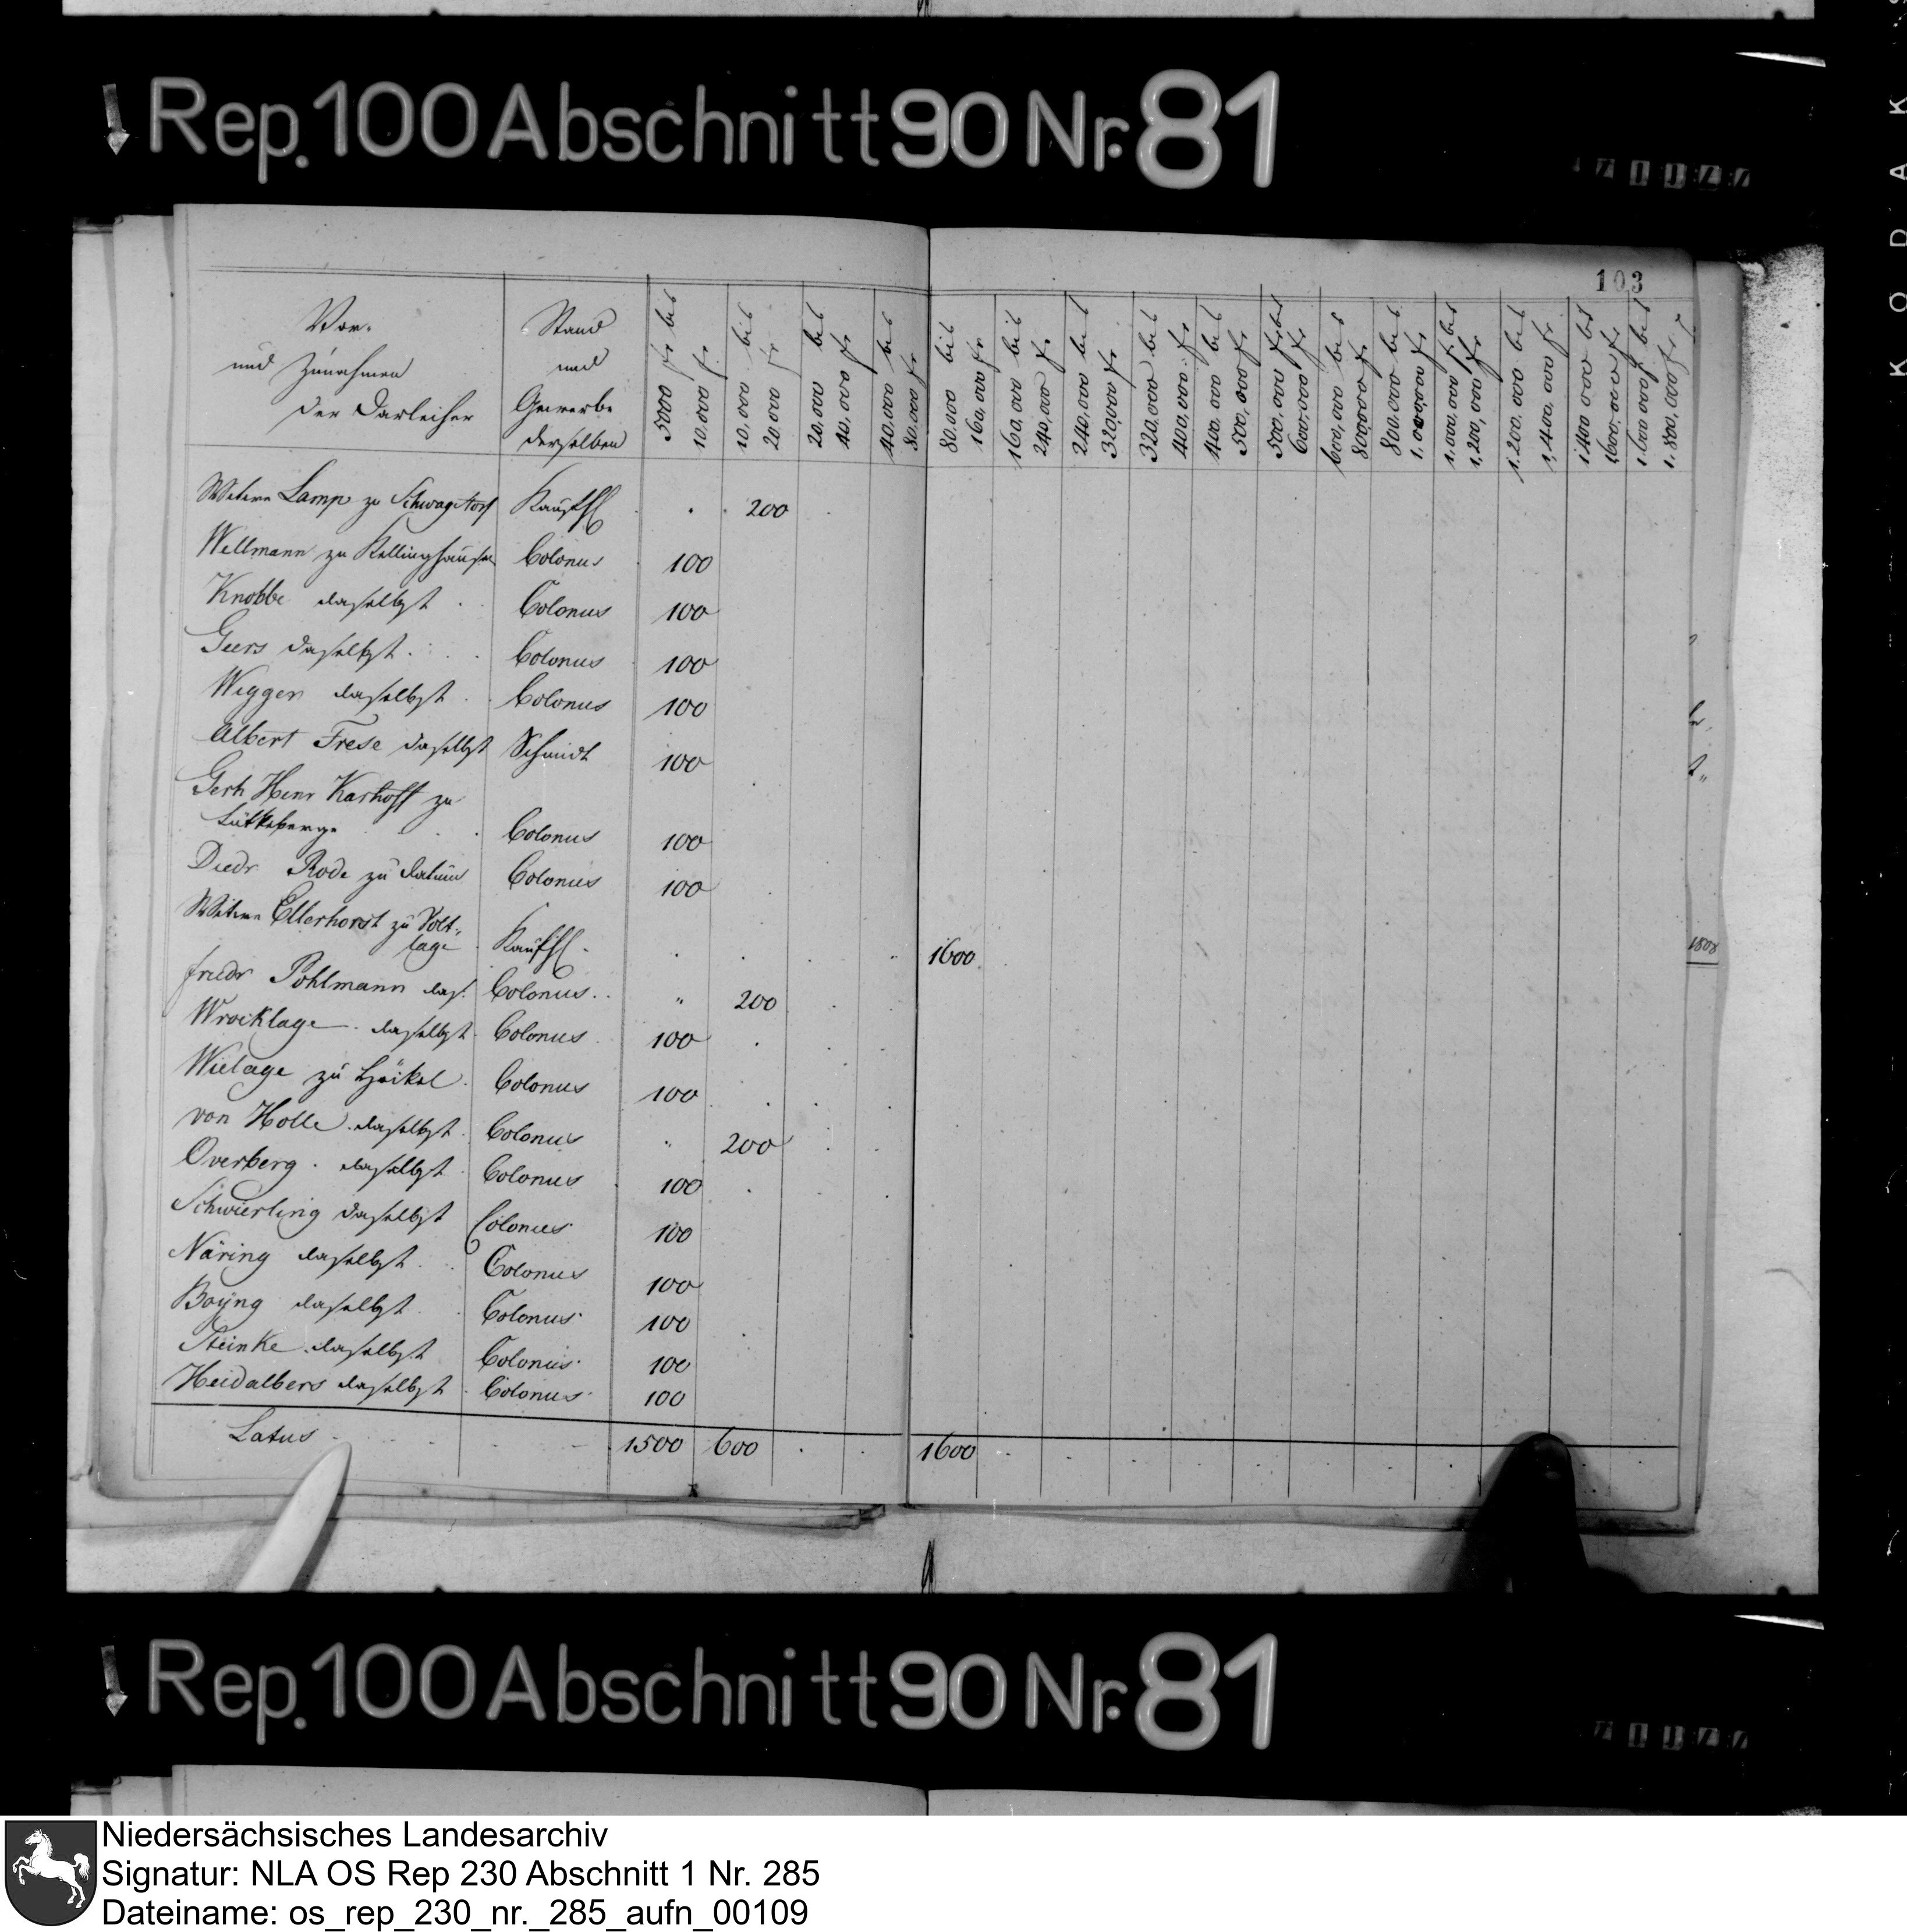 Rep. 100 Abschnitt 90 Nr. 81
103
Vor- und Zunahmen der Darleiher
Stand und Gewerbe derselben
5000 fr bis 10,000 fr
10,000 bis 20,000 fr
20,000 bis 40,000 fr
40,000 bis 80,000 fr
80,000 bis 160,000 fr
160,000 bis 240,000 fr
240,000 bis 320,000 fr
320,000 bis 400,000 fr
400,000 bis 500,000 fr
500,000 fr bis 600,000 fr
600,000 bis 800,000 fr
800,000 bis 1,000,000 fr
1,000,000 fr bis 1,200,000 fr
1,200,000 bis 1,400,000 fr
1,400,000 bis 1,600,000 fr
1,600,000 fr bis 1,800,000 fr
Witwe Lamp zu Schwagstorf Kauffl 200
Wellmann zu Kellinghausen Colonus 100
Knobbe daselbst Colonus 100
Geers daselbst Colonus 100
Wigger daselbst Colonus 100
Albert Frese daselbst Schmidt 100
Gerh Henr Karhoff zu
Lütkeberge Colonus 100
Diedr Rode zu Colonus 100
Witwe Ellerhorst zu Volt-
lage Kauffl 1600
Friedr Pohlmann das. Colonus 200
Wrocklage daselbst Colonus 100
Wielage zu Höckel Colonus 100
von Holle daselbst Colonus 200
Overberg daselbst Colonus 100
Schwierling daselbst Colonus 100
Näring daselbst Colonus 100
Boÿng daselbst Colonus 100
Steinke daselbst Colonus 100
Heidalbers daselbst Colonus 100
Latus 1500 600 1600
Rep. 100 Abschnitt 90 Nr. 81
KODAK
Niedersächsisches Landesarchiv
Signatur: NLA OS Rep 230 Abschnitt 1 Nr. 285
Dateiname: os_rep_230_nr._285_aufn_00109